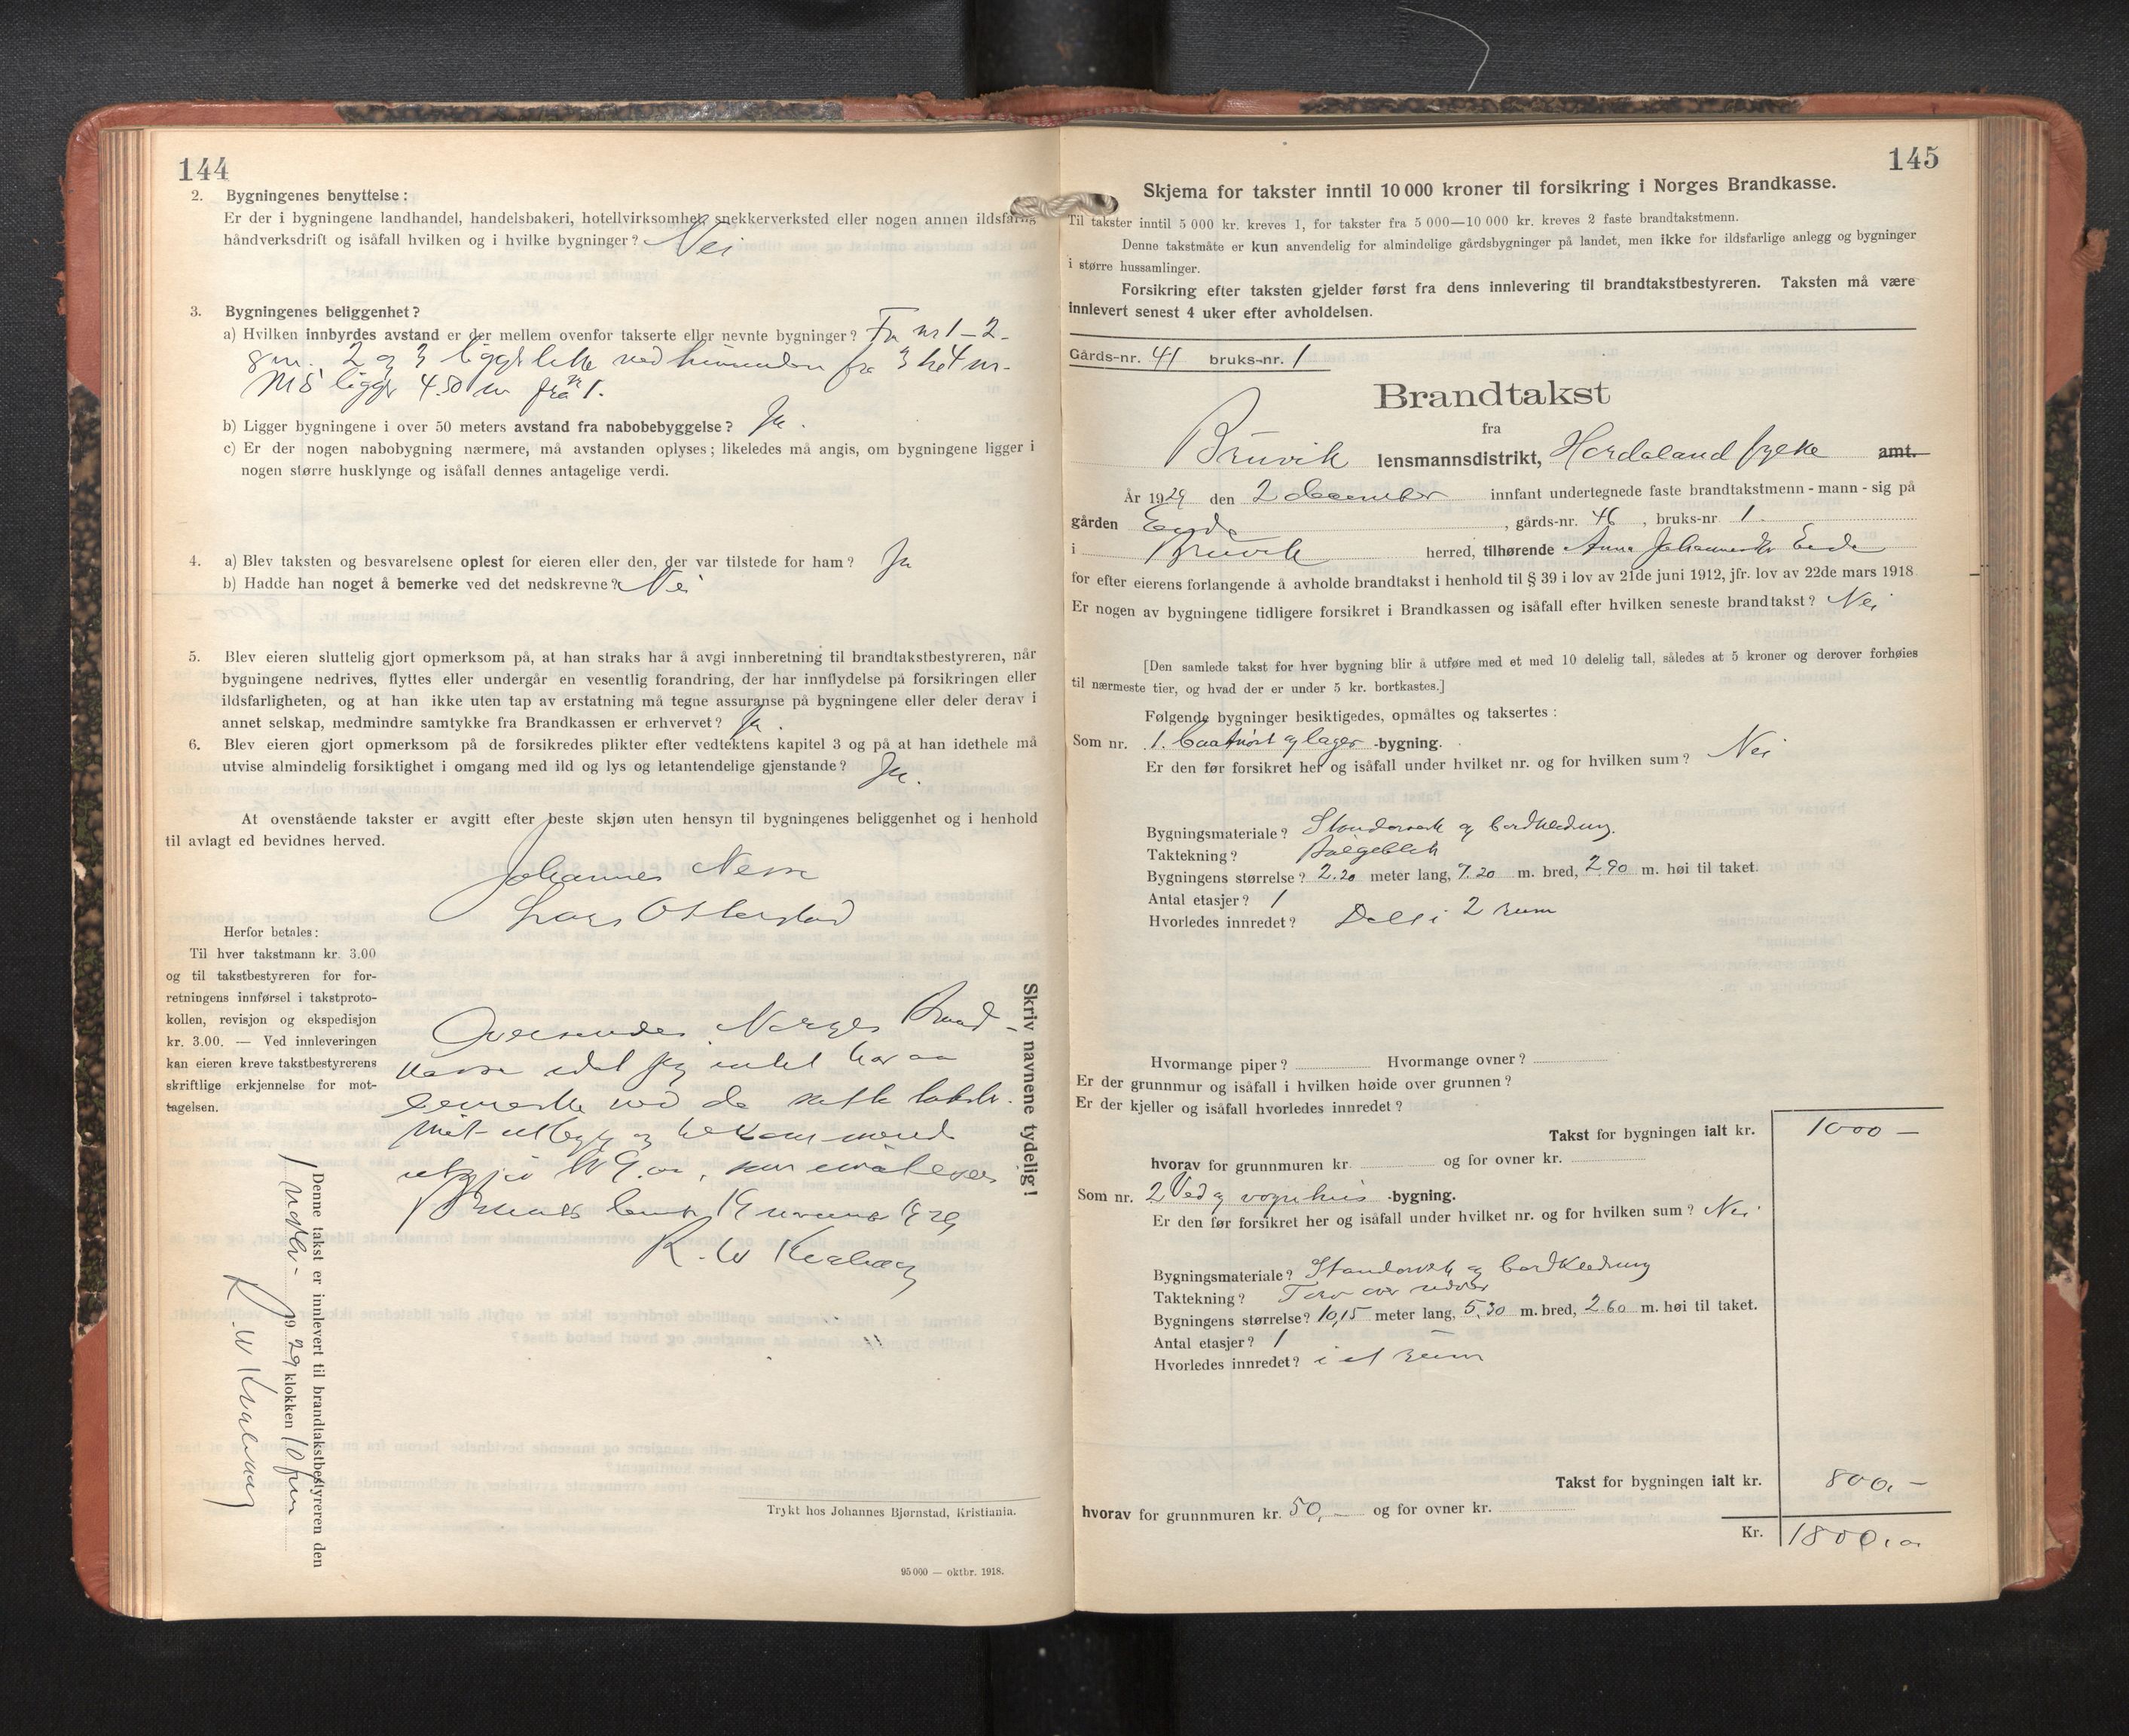 144
2. Bygningenes benyttelse:
Er der i bygningene landhandel, handelsbakeri, hotellvirksomhet, snekkerverksted eller nogen annen ildsfarlig
håndverksdrift og isåfall hvilken og i hvilke bygninger? Nei
3. Bygningenes beliggenhet?
a) Hvilken innbyrdes avstand er der mellem ovenfor takserte eller nevnte bygninger? Fra nr 1 - 2 -
8 m. 2 og 3 ligger ved fra 3 til 4 m.
Nr 5 ligger 4.50 m fra nr 1.
b) Ligger bygningene i over 50 meters avstand fra nabobebyggelse? Ja.
c) Er der nogen nabobygning nærmere, må avstanden oplyses; likeledes må angis, om bygningene ligger i
nogen større husklynge og isåfall dennes antagelige verdi.
4. a) Blev taksten og besvarelsene oplest for eieren eller den, der var tilstede for ham? Ja
b) Hadde han noget å bemerke ved det nedskrevne? Nei
5. Blev eieren sluttelig gjort opmerksom på, at han straks har å avgi innberetning til brandtakstbestyreren, når
bygningene nedrives, flyttes eller undergår en vesentlig forandring, der har innflydelse på forsikringen eller
ildsfarligheten, og at han ikke uten tap av erstatning må tegne assuranse på bygningene eller deler derav i
annet selskap, medmindre samtykke fra Brandkassen er erhvervet? Ja.
6. Blev eieren gjort opmerksom på de forsikredes plikter efter vedtektens kapitel 3 og på at han idethele må
utvise almindelig forsiktighet i omgang med ild og lys og letantendelige gjenstande? Ja.
At ovenstående takster er avgitt efter beste skjøn uten hensyn til bygningenes beliggenhet og i henhold
til avlagt ed bevidnes herved.
Johannes Nesse
Lars Otterstad
Herfor betales:
Til hver takstmann kr. 3.00
og til takstbestyreren for for-
retningens innførsel i takstproto-
kollen, revisjon og ekspedisjon
kr. 3.00. — Ved innleveringen
kan eieren kreve takstbestyrerens
skriftlige erkjennelse for mot-
tagelsen.
Oversendes Norges Brand-
kasse idet jeg intet har aa
bemerke ved de satte takster.
K. W.
Skriv navnene tydelig!
Denne takst er innlevert til brandtakstbestyreren den
1929 klokken 10 fm
K. W.
Trykt hos Johannes Bjørnstad, Kristiania.
95 000 — oktbr. 1918.
145
Skjema for takster inntil 10 000 kroner til forsikring i Norges Brandkasse.
Til takster inntil 5 000 kr. kreves 1, for takster fra 5 000—10 000 kr. kreves 2 faste brandtakstmenn.
Denne takstmåte er kun anvendelig for almindelige gårdsbygninger på landet, men ikke for ildsfarlige anlegg og bygninger
i større hussamlinger.
Forsikring efter taksten gjelder først fra dens innlevering til brandtakstbestyreren. Taksten må være
innlevert senest 4 uker efter avholdelsen.
Gårds-nr. 41 bruks-nr. 1
Brandtakst
fra
Bruvik lensmannsdistrikt, Hordaland fylke amt.
År 1929 den 2 december innfant undertegnede faste brandtakstmenn - mann - sig på
gården , gårds-nr. 46, bruks-nr 1.
i Bruvik herred, tilhørende Anna Eide
for efter eierens forlangende å avholde brandtakst i henhold til § 39 i lov av 21de juni 1912, jfr. lov av 22de mars 1918
Er nogen av bygningene tidligere forsikret i Brandkassen og isåfall efter hvilken seneste brandtakst? Nei
[Den samlede takst for hver bygning blir å utføre med et med 10 delelig tall, således at 5 kroner og derover forhøies
til nærmeste tier, og hvad der er under 5 kr. bortkastes.]
Følgende bygninger besiktigedes, opmåltes og taksertes:
Som nr. 1. baatnöst og lager -bygning.
Er den før forsikret her og isåfall under hvilket nr. og for hvilken sum? Nei
Bygningsmateriale? Standerverk og bordkledning.
Taktekning? Bölgeblek
Bygningens størrelse? 2.20 meter lang, 7.20 m. bred, 2.90 m. høi til taket.
Antal etasjer? 1
Hvorledes innredet? Delt i 2 rum
Hvormange piper? Hvormange ovner?
Er der grunnmur og isåfall i hvilken høide over grunnen?
Er der kjeller og isåfall hvorledes innredet?
Takst for bygningen ialt kr. 1000 —
hvorav for grunnmuren kr. og for ovner kr.
Som nr. 2 Ved og vognhus -bygning.
Er den før forsikret her og isåfall under hvilket nr. og for hvilken sum? Nei
Bygningsmateriale? Standerverk og bordkledning
Taktekning? Torv over næver
Bygningens størrelse? 10,15 meter lang, 5.30 m. bred, 2.60 m. høi til taket.
Antal etasjer? 1
Hvorledes innredet? i et rum
Takst for bygningen ialt kr. 800,—
hvorav for grunnmuren kr. 50,— og for ovner kr.
Kr. 1800,00